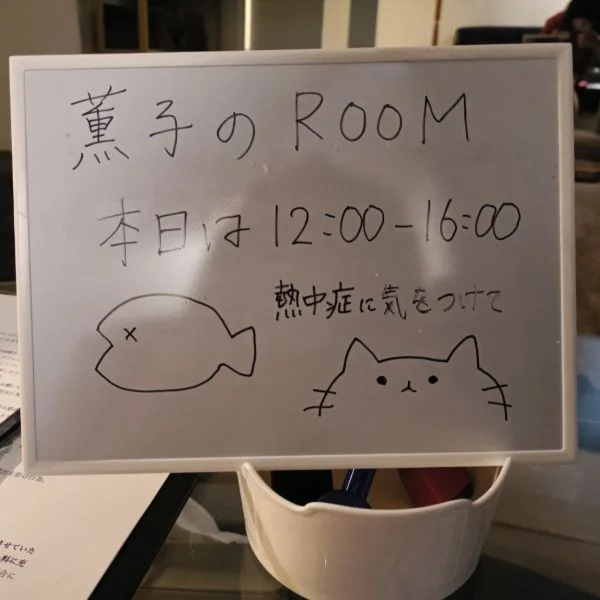 薫子のROOM
本日は12:00-16:00
熱中症に気をつけて